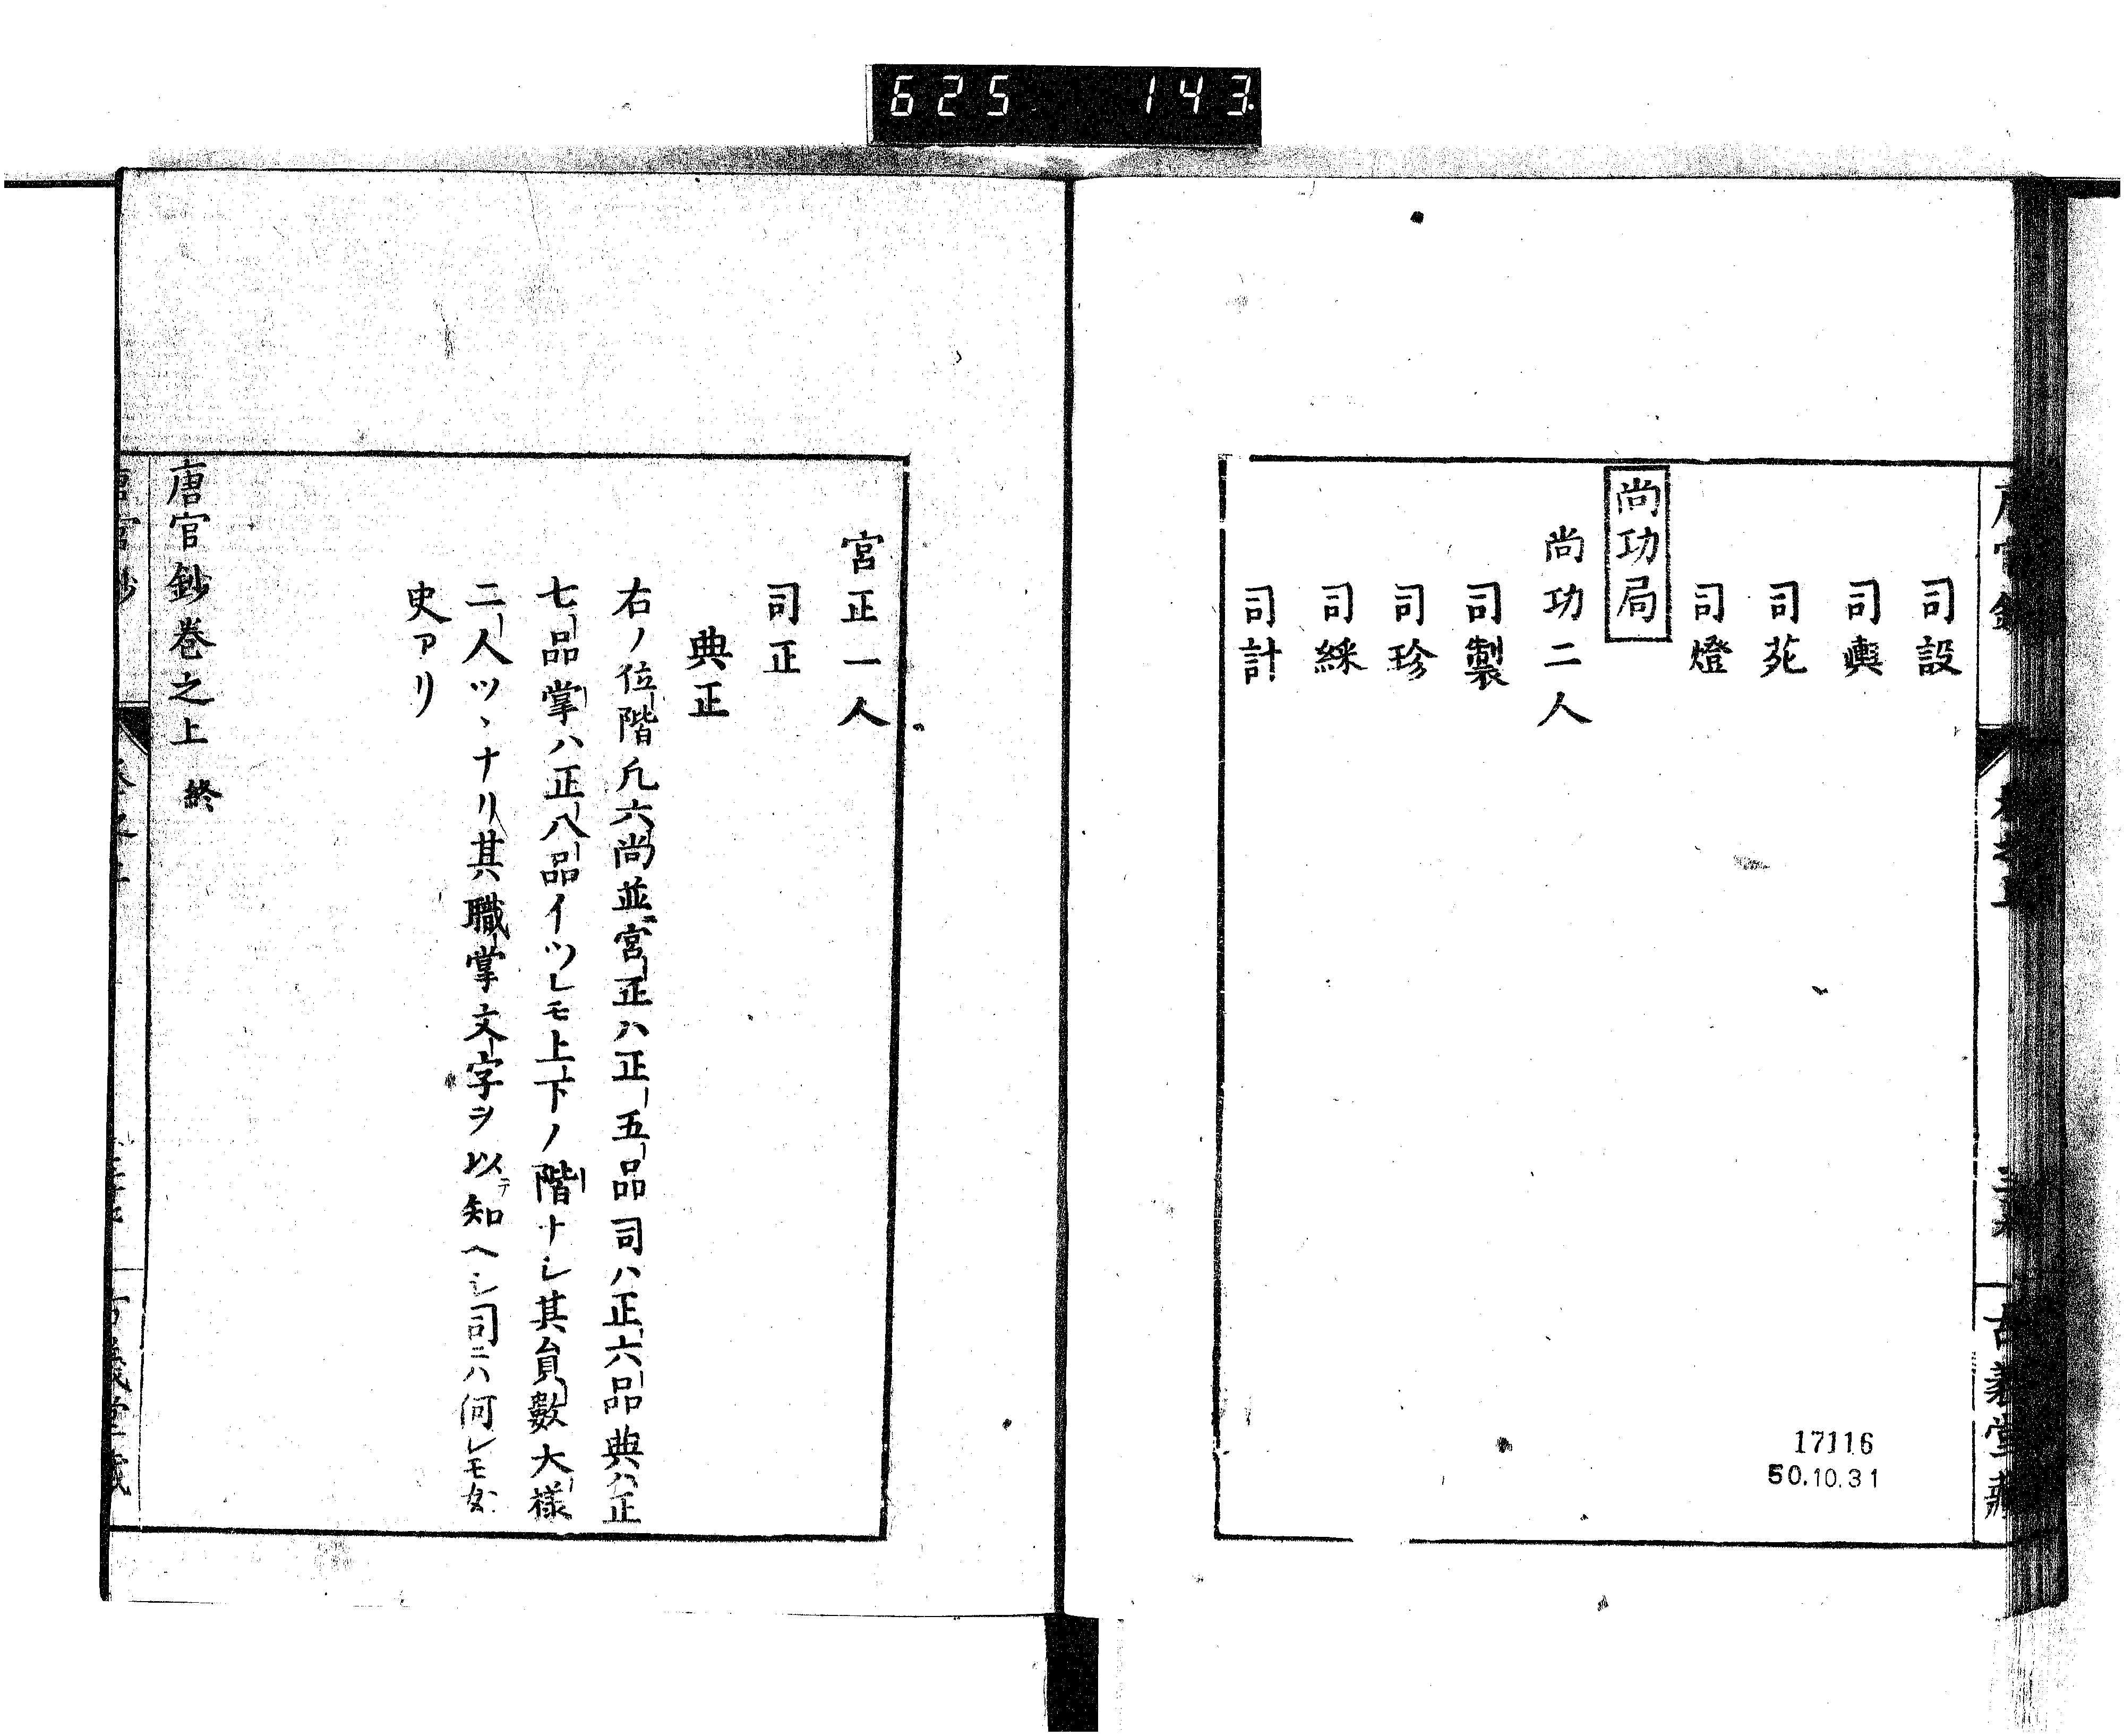 625 143
司設
司輿
司苑
司燈
尚功局
尚功二人
司製
司珍
司綵
司計
17116
50.10.31
宮正一人
司正
典正
右ノ位階凡六尚並ニ宮正ハ正五品司ハ正六品典ハ正
七品掌ハ正八品イツレモ上下ノ階ナシ其員數大様
二人ツヽナリ其職掌文字ヲ以テ知ヘシ司ニハ何レモ女
史アリ
唐官鈔巻之上 終